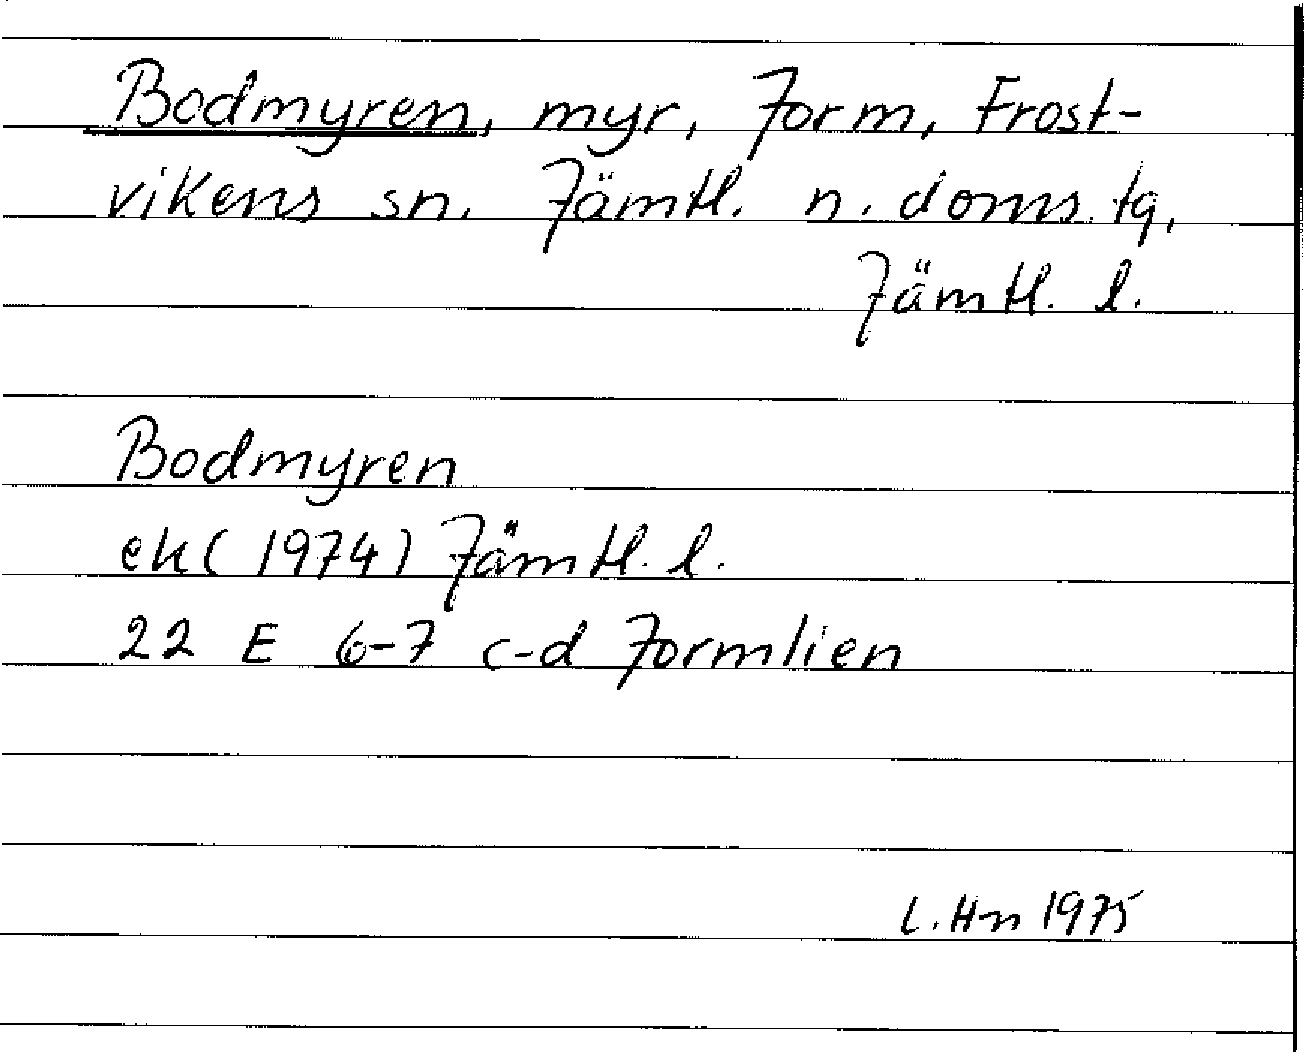 Bodmyren, myr, Jorm, Frost-
vikens sn. Jämtl. n. doms. tg,
Jämtl. l.
Bodmyren
ek (1974) Jämtl. l.
22 E 6-7 c-d Jormlien
L. Hn 1975